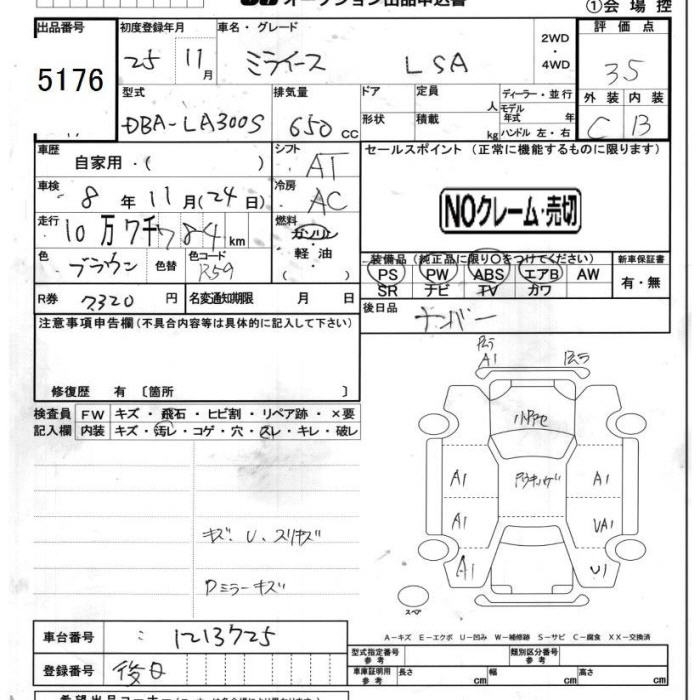 オークション出品申込書
①会場控
出品番号
5176
初度登録年月
25 11月
車名・グレード
ミライース LSA
2WD
・
4WD
評価点
35
外装 内装
C B
型式
DBA-LA300S
排気量
650 cc
ドア
形状
定員 人
積載 kg
ディーラー・並行
モデル年式 年
ハンドル 左・右
車歴
自家用・( )
シフト
AT
車検
8年11月(24日)
冷房
AC
走行
10万7千784km
燃料
ガソリン
軽油
( )
色
ブラウン
色替
色コード
R59
R券 7320円
名変通知期限 月 日
セールスポイント(正常に機能するものに限ります)
NOクレーム・売切
装備品(純正品に限り○をつけてください)
PS PW ABS エアB AW
SR ナビ TV カワ
新車保証書
有・無
後日品
ナンバー
注意事項申告欄(不具合内容等は具体的に記入して下さい)
修復歴 有〔箇所 〕
検査員
記入欄
FW キズ・飛石・ヒビ割・リペア跡・×要
内装 キズ・汚レ・コゲ・穴・スレ・キレ・破レ
キズ、U、スリキズ
Dミラーキズ
A1
A1 A1
A1 UA1
A1 U1
スペア
A-キズ E-エクボ U-凹み W-補修跡 S-サビ C-腐食 XX-交換済
車台番号 : 1213725
登録番号 後日
型式指定番号
参考
類別区分番号
参考
車庫証明用
参考
長さ cm 幅 cm 高さ cm